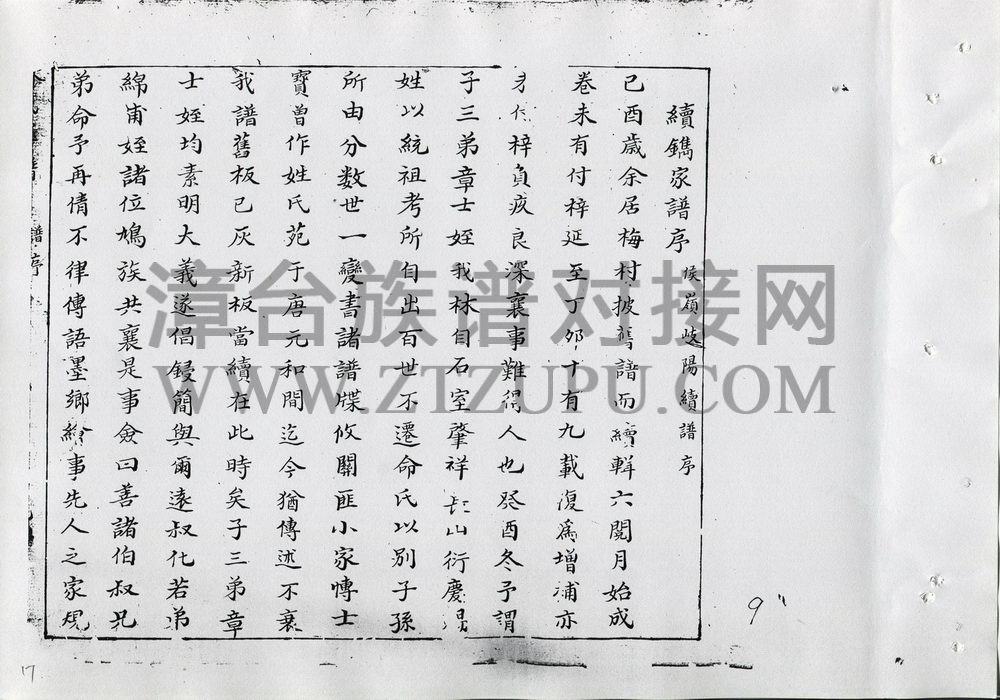 續鐫家譜序 侯嶺岐陽續譜序
己酉歲余居梅村披舊譜而續輯六閱月始成
卷未有付梓延至丁夘十有九載復為增浦亦
梓負疚良深襄事難得人也癸酉冬予謂
子三弟章士姪我林自石室肇祥長山衍慶
姓以統祖考所自出百世不遷命氏以別子孫
所由分数世一變書諸譜牒攸關匪小家愽士
寶曾作姓氏苑于唐元和間迄今猶傳述不衰
我譜舊板已灰新板當續在此時矣子三弟章
士姪均素明大義遂倡鋟簡與爾遠叔化若弟
綿甫姪諸位鳩族共襄是事僉曰善諸伯叔兄
弟命予再倩不律傳語墨鄉繪事先人之家規
譜序
漳台族谱对接网
WWW.ZTZUPU.COM
9
17